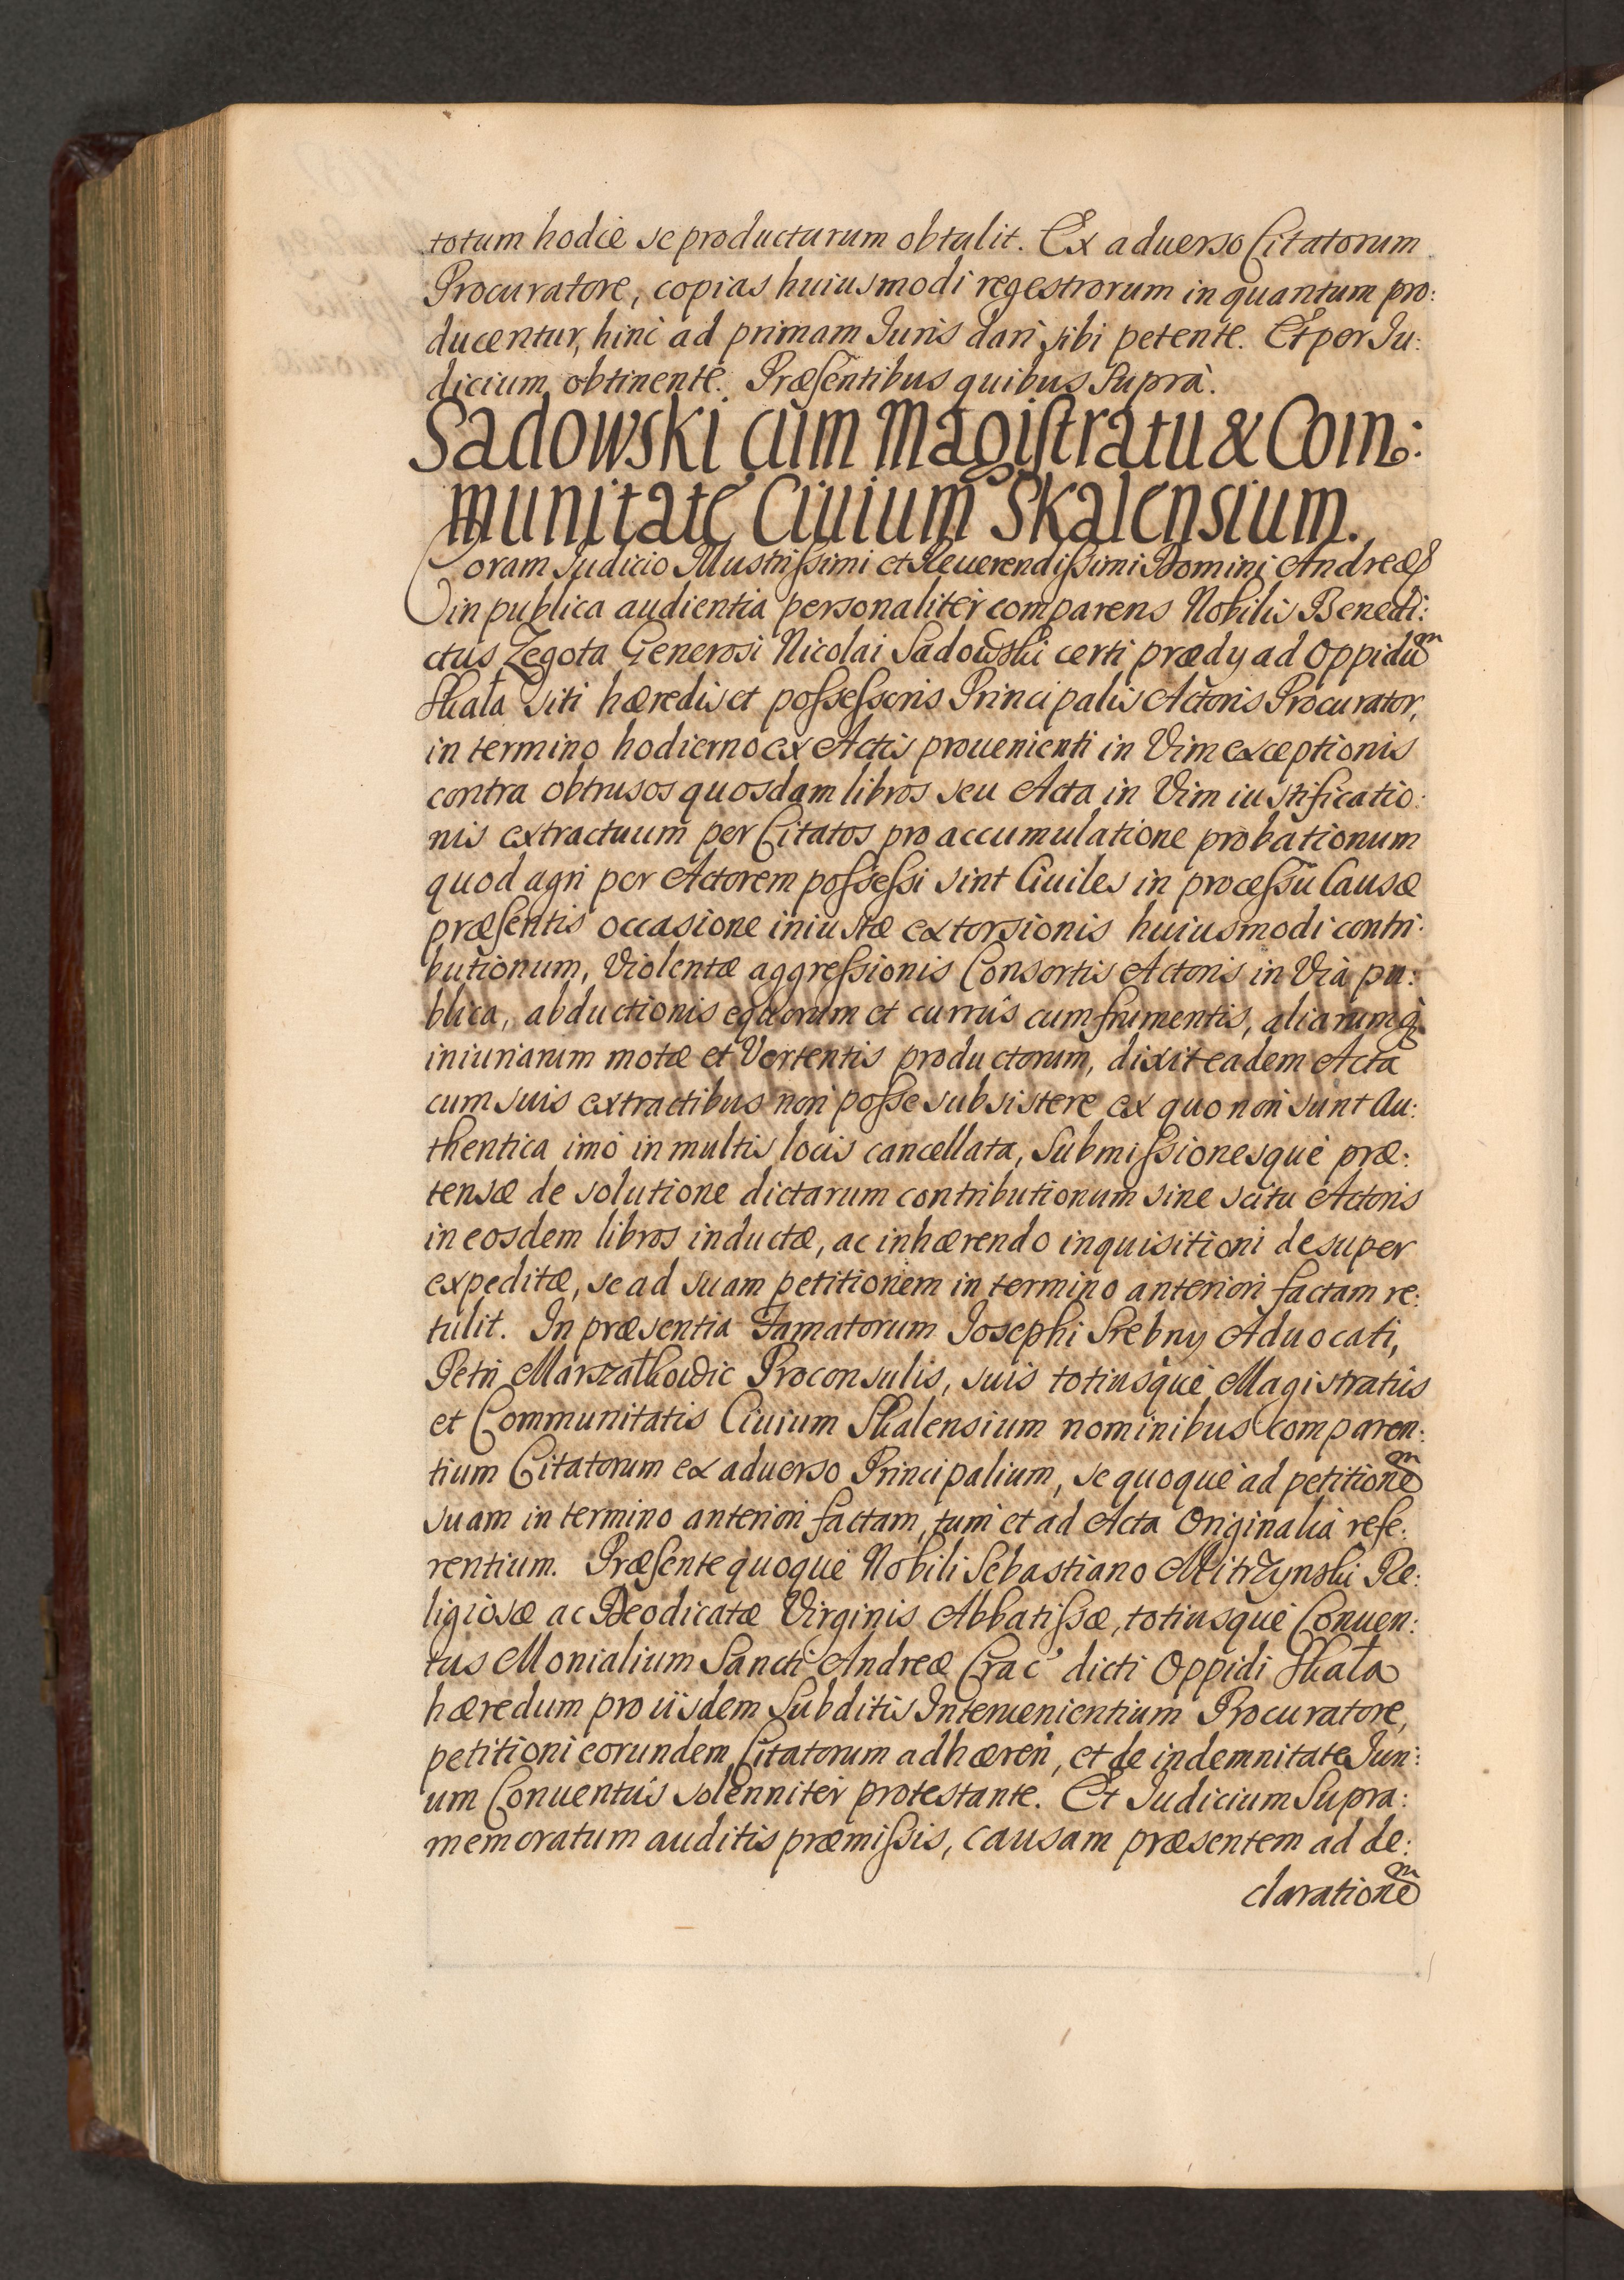 totum hodie se producturum obtulit. Ex aduerso Citatorum
Procuratore, copias huiusmodi regestrorum in quantum pro:
ducentur, hinc ad primam Iuris dari sibi petente. Et per Iu:
dicium obtinente. Præsentibus quibus Suprà.
Sadowski cum Magistratu & Com:
munitate Ciuium Skalensium.
Coram Iudicio Illustrissimi et Reuerendissimi Domini Andreæ &
in publica audientia personaliter comparens Nobilis Benedi:
ctus Zegota Generosi Nicolai Sadowski certi prædy ad Oppidu͂m
Skała siti hæredis et possessoris Principalis Actoris Procurator,
in termino hodierno ex Actis prouenienti in Vim exceptionis
contra obtrusos quosdam libros seu Acta in Vim iustificatio:
nis extractuum per Citatos pro accumulatione probationum
quod agri per Actorem possessi sint Ciuiles in processu Causæ
præsentis occasione iniustæ extorsionis huiusmodi contri:
butionum, Violentæ aggressionis Consortis Actoris in Via pu:
blica, abductionis equorum et currus cum frumentis, aliarumq́
iniuriarum motæ et Vertentis productorum, dixit eadem Acta
cum suis extractibus non posse subsistere ex quo non sunt Au:
thentica imò in multis locis cancellata, Submissionesque præ:
tensæ de solutione dictarum contributionum sine scitu Actoris
in eosdem libros inductæ, ac inhærendo inquisitioni desuper
expeditæ, se ad suam petitionem in termino anteriori factam re:
tulit. In præsentia Famatorum Iosephi Srebny Aduocati,
Petri Marszałkowic Proconsulis, suis totiusque Magistratus
et Communitatis Ciuium Skalensium nominibus comparen:
tium Citatorum ex aduerso Principalium, se quoque ad petitionem
suam in termino anteriori factam, tum et ad Acta Originalia refe:
rentium. Præsente quoque Nobili Sebastiano Mitrzynski Re:
ligiosæ ac Deodicatæ Virginis Abbatissæ, totiusque Conuen:
tus Monialium Sancti Andreæ Crac dicti Oppidi Skała
hæredum pro iisdem Subditis Interuenientium Procuratore,
petitioni eorundem Citatorum adhæren, et de indemnitate Iuri:
um Conuentus solenniter protestante. Et Iudicium Supra:
memoratum auditis præmissis, causam præsentem ad de:
clarationem